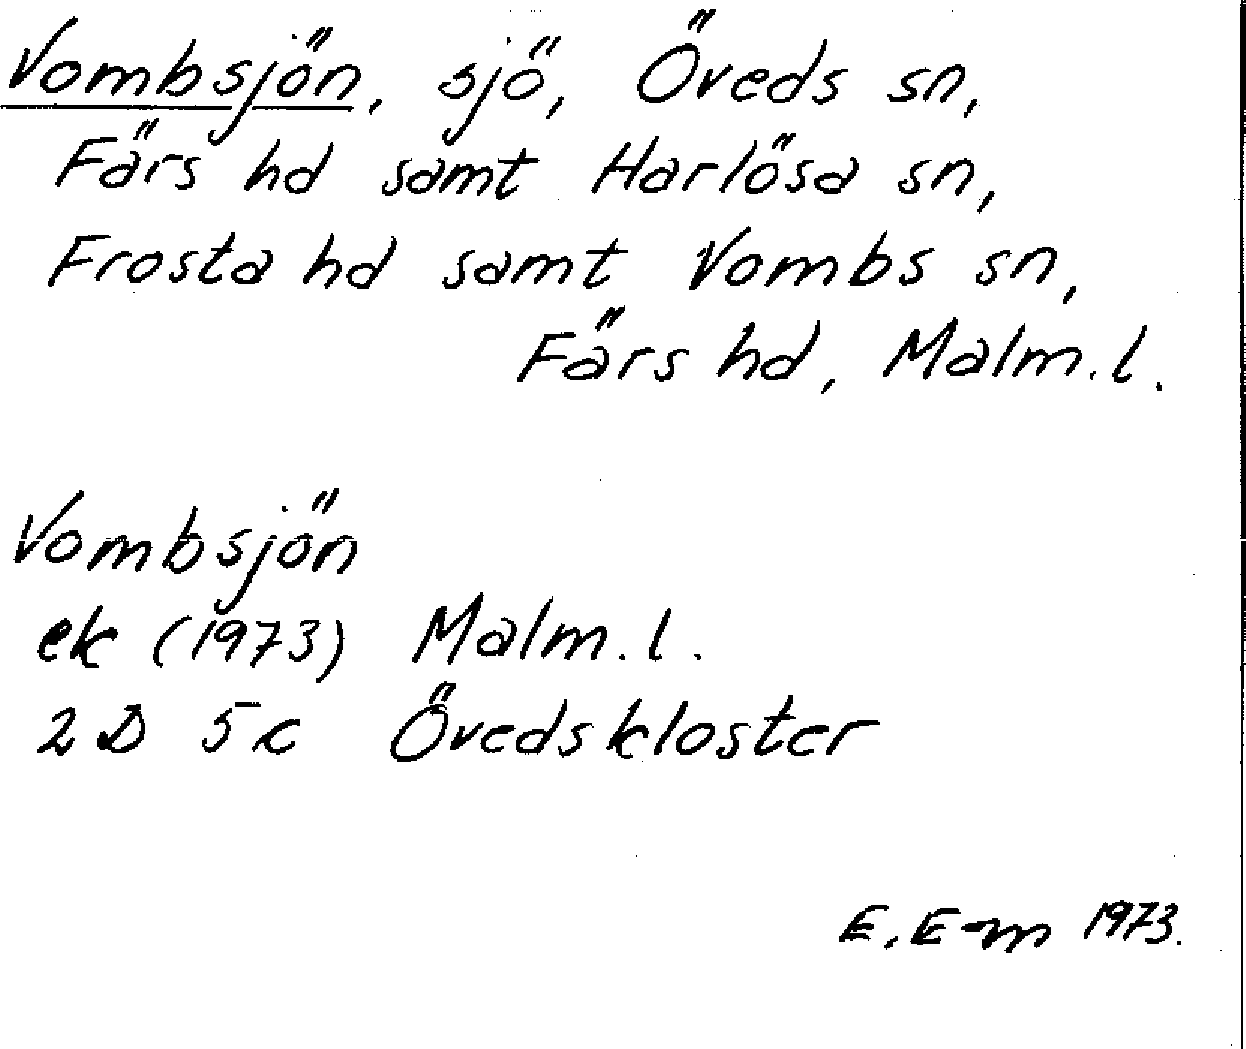 Vombsjön, sjö, Öveds sn,
Färs hd samt Harlösa sn,
Frosta hd samt Vombs sn,
Färs hd, Malm.l.
Vombsjön
ek (1973) Malm.l.
2D 5c Övedskloster
E.E-m 1973.